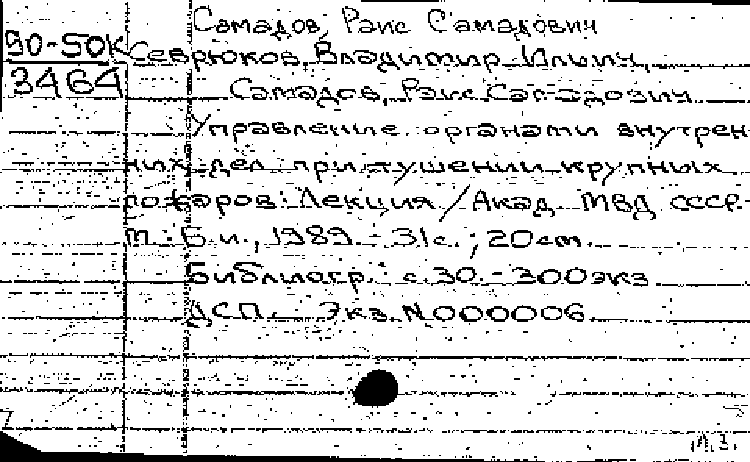 Самадов, Раис Самадович
90-50к Севрюков, Владимир Ильич,
3464 Самадов, Раис Самадович
Управление органами внутрен-
них дел при тушении крупных
пожаров: Лекция / Акад. МВД СССР.-
М.: Б.и., 1989.- 31с.; 20см.
Библиогр.: с.30.- 300экз
ДСП. Экз. N000006